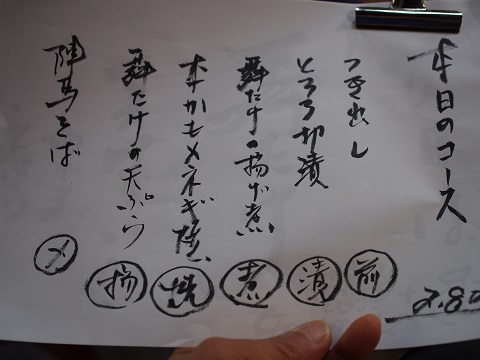 本日のコース
つき出し
前
とろろ村漬
漬
舞たけの揚げ煮
煮
本かもメネギ焼
焼
舞たけの天ぷら
揚
陣馬そば
〆